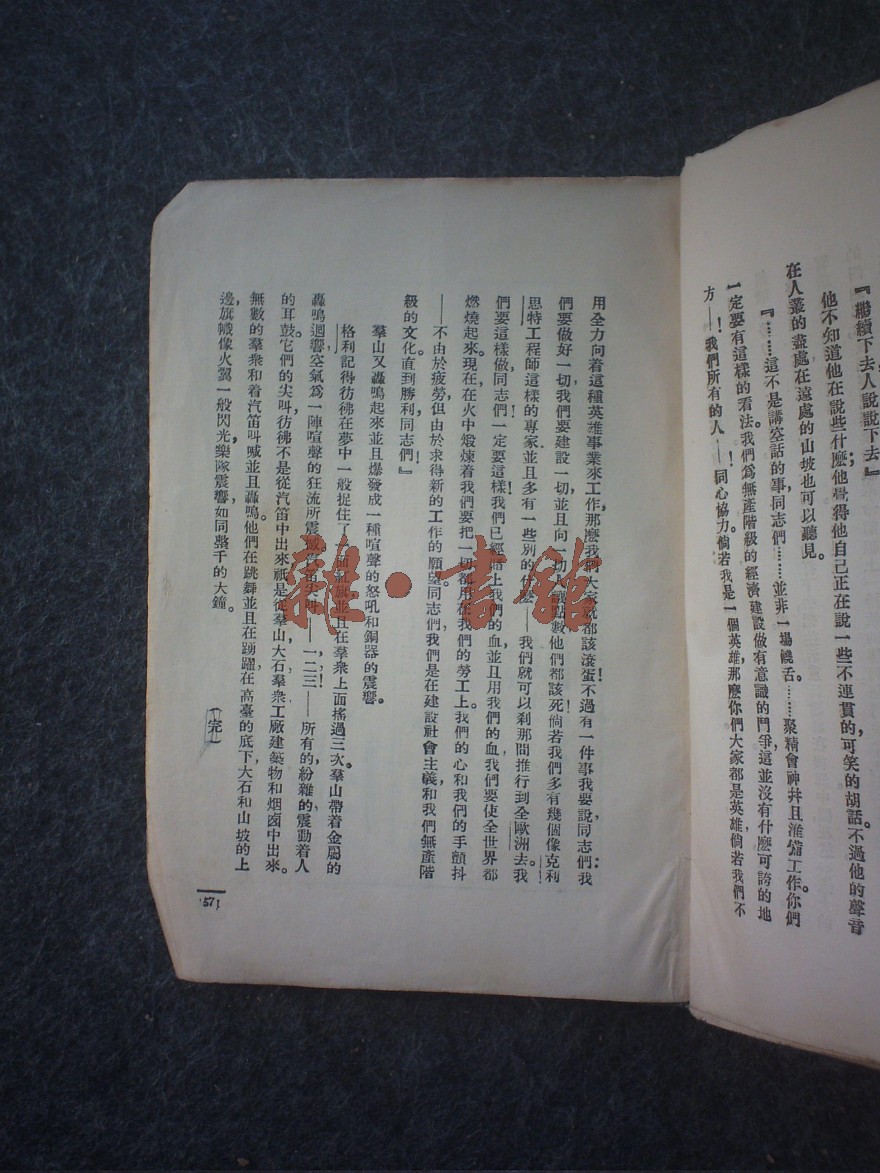 『繼續下去人說說下去』
他不知道他在說些什麽；他覺得他自己正在說一些不連貫的可笑的胡話，不過他的聲音
在人叢的盡處在遠處的山坡也可以聽見。
『……這不是講空話的事，同志們……並非一場饒舌。……聚精會神幷且準備工作。你們
一定要有這樣的看法。我們爲無產階級的經濟建設做有意識的鬥爭！這並沒有什麽可誇的地
方——！我們所有的人——同心協力！倘若我是一個英雄，那麽你們大家都是英雄，倘若我們不
用全力向着這種英雄事業來工作，那麽我們大家就都該滾蛋！不過有一件事我要說，同志們：我
們要做好一切，我們要建設一切，並且向一切人議點數，他們都該死！倘若我們多有幾個像克利
思特工程師這樣的專家，並且多有一些別的什麽——我們就可以刹那間推行到全歐洲去！我
們要這樣做，同志們！一定要這樣！我們已經賠上我們的血，並且用我們的血我們要使全世界都
燃燒起來。現在，在火中煅煉着，我們要把一切都用在我們的勞工上。我們的心和我們的手顫抖
——不由於疲勞，但由於求得新的工作的願望。同志們，我們是在建設社會主義和我們無產階
級的文化。直到勝利，同志們！』
羣山又轟鳴起來，並且爆發成一種喧聲的怒吼和銅器的震響。
格利記得彷彿在夢中一般捉住了一面紅旗，並且在羣衆上面搖過三次。羣山帶着金屬的
轟鳴迴響，空氣爲一陣喧聲的狂流所震撼。汽笛尖叫——一，二，三！——所有的，紛雜的，震動着人
的耳鼓。它們的尖叫彷彿不是從汽笛中出來，祇是從羣山，大石，羣衆，工廠，建築物和烟囱中出來。
無數的羣衆和着汽笛叫喊並且轟鳴。他們在跳舞並且在踴躍，在高臺的底下，大石和山坡的上
邊，旗幟像火翼一般閃光，樂隊震響，如同整千的大鐘。
（完）
571
雜·書館